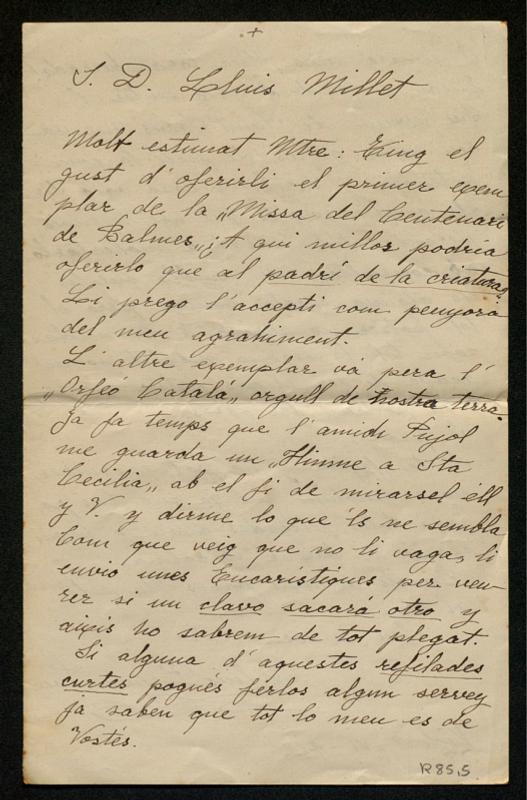 +
S. D. Lluis Millet
Molt estimat Mtre: Ting el
gust d' oferirli el primer exem
plar de la „Missa del Centenari
de Balmes„ ¿A qui millor podria
oferirlo que al padrí de la criatura?
Li prego l'accepti com penyora
del meu agrahiment.
L' altre exemplar vá pera l'
„Orfeó Catalá„ orgull de nostra terra.
Ja fa temps que l' amich Pujol
me guarda un „Himne a Sta
Cecilia„ ab el fi de mirarsel éll
y V. y dirme lo que 'ls ne sembla
Com que veig que no li vaga, li
envio unes Eucarístiques per veu-
rer si un clavo sacará otro y
aixis ho sabrem de tot plegat.
Si alguna d' aquestes refilades
curtes pogués ferlos algun servey
ja saben que tot lo meu es de
Vostés.
R 85,5